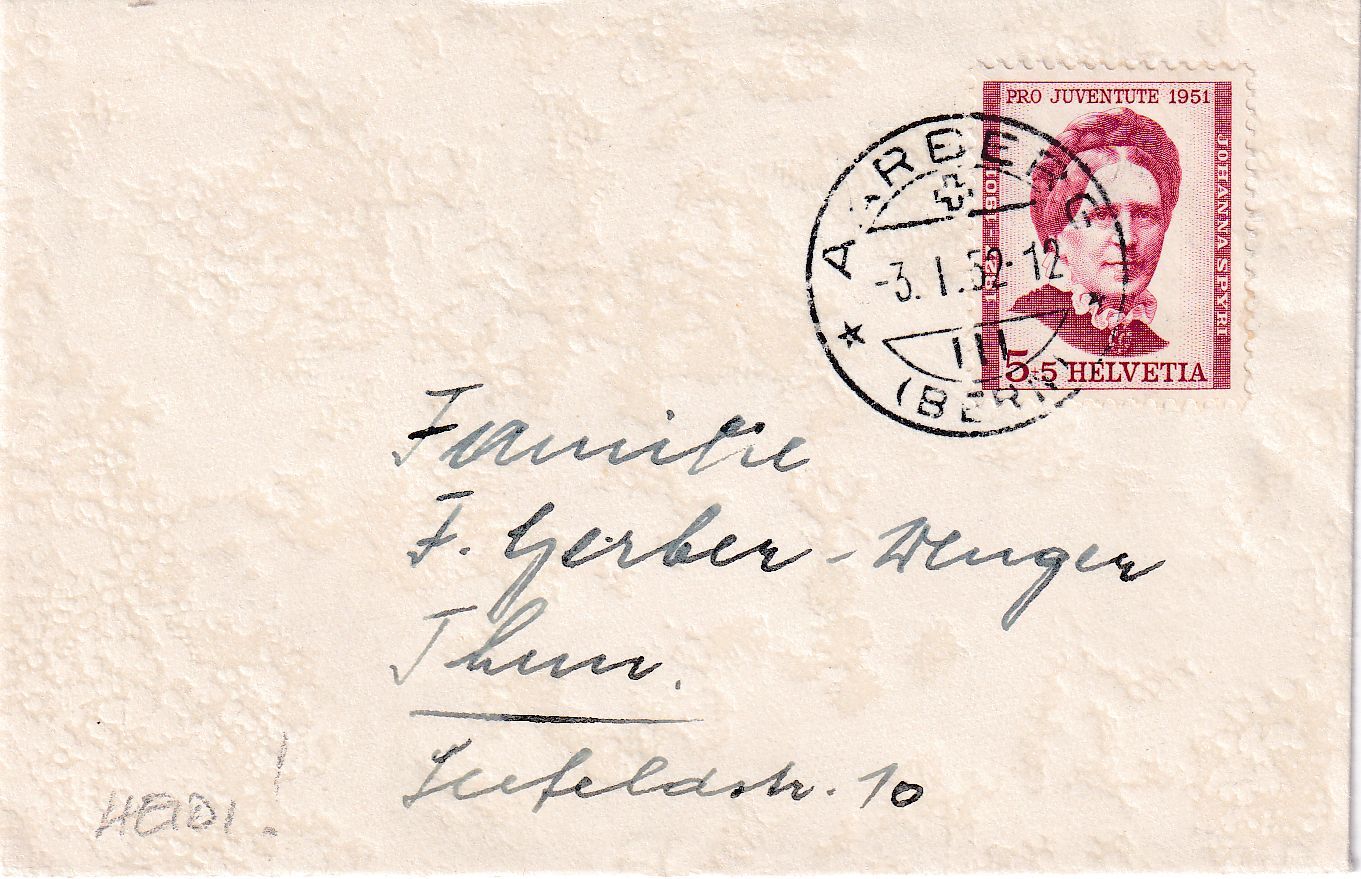 PRO JUVENTUTE 1951
1827-1901
JOHANNA SPYRI
5+5 HELVETIA
AARBERG
-3.I.52-12
III
(BERN)
Familie
F. Gerber-Wenger
Thun.
Seefeldstr. 10
HEIDI!